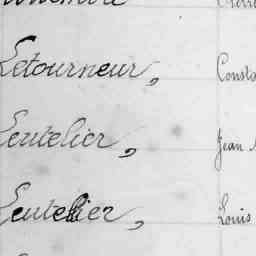 Letourneur, Consta
Leutelier, Jean
Leutelier, Louis